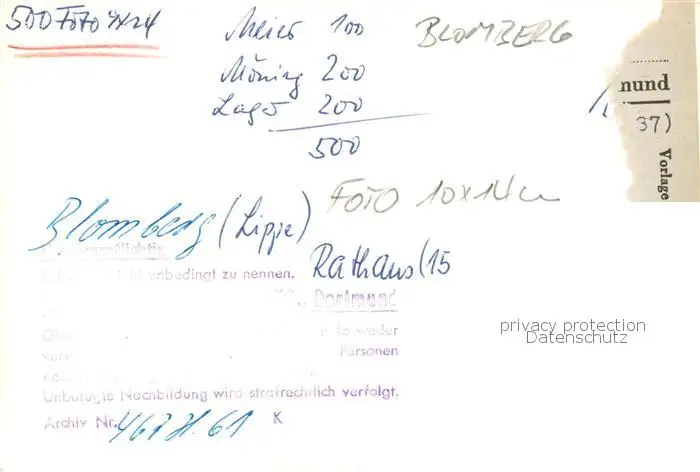 500 FOTO 9x14
Meier 100 BLOMBERG
Möning 200
Lager 200
500
mund
37)
Vorlage
FOTO 10x14 cm
Blomberg (Lippe)
Rathaus (15
unbedingt zu nennen.
Dortmund
weder
Personen
Unbefugte Nachbildung wird strafrechtlich verfolgt.
Archiv Nr. 467 H. 61 K
privacy protection
Datenschutz